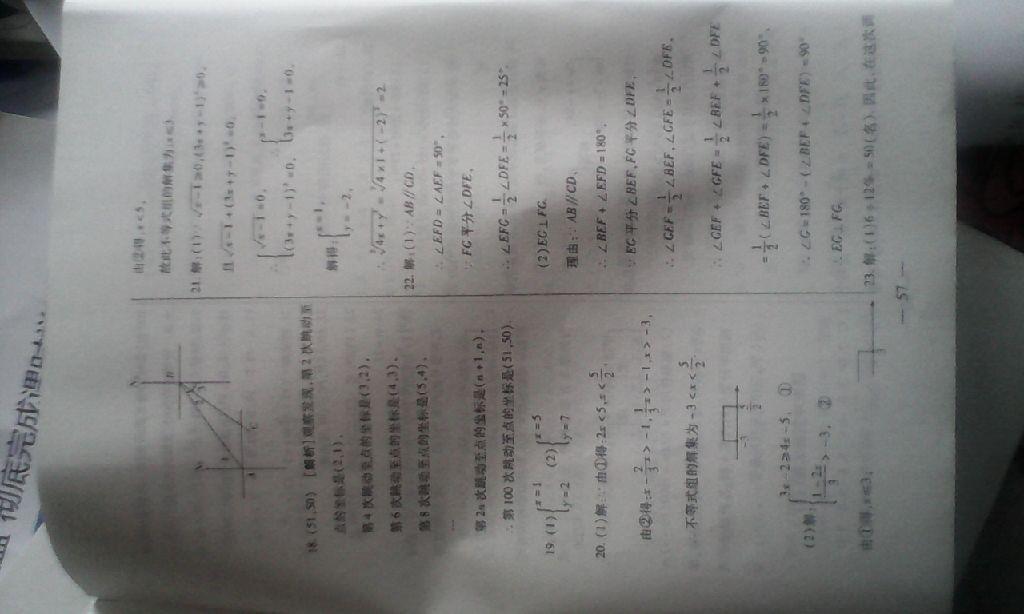 18. (51,50) [解析]观察发现,第2次跳动至
点的坐标是(2,1),
第4次跳动至点的坐标是(3,2),
第6次跳动至点的坐标是(4,3),
第8次跳动至点的坐标是(5,4),
…
第2n次跳动至点的坐标是(n+1,n),
∴第100次跳动至点的坐标是(51,50).
19. (1){x=1 y=2 (2){x=5 y=7
20. (1)解:∵由①得:2x<5,x<5/2,
由②得:x-2/3x>-1,1/3x>-1,x>-3,
∴不等式组的解集为-3<x<5/2.
-3 5/2
(2)解:{3x-2≥4x-5, ① (1-2x)/3>-3, ②
由①得,x≤3;
3
由②得,x<5,
故此不等式组的解集为:x≤3.
21. 解:(1)∵√(x-1)≥0,(3x+y-1)²≥0,
且√(x-1)+(3x+y-1)²=0,
∴{√(x-1)=0, (3x+y-1)²=0, ∴{x-1=0, 3x+y-1=0,
解得:{x=1, y=-2,
22. 解:(1)∵AB∥CD,
∴∠EFD=∠AEF=50°,
∵FG平分∠DFE,
∴∠EFG=1/2∠DFE=1/2×50°=25°.
(2)EG⊥FG.
理由:∵AB∥CD,
∴∠BEF+∠EFD=180°,
∵EG平分∠BEF,FG平分∠DFE,
∴∠GEF=1/2∠BEF,∠GFE=1/2∠DFE,
∴∠GEF+∠GFE=1/2∠BEF+1/2∠DFE
=1/2(∠BEF+∠DFE)=1/2×180°=90°,
∴∠G=180°-(∠BEF+∠DFE)=90°
∴EG⊥FG.
23. 解:(1)6÷12%=50(名).因此,在这次调
— 57 —
彻底完成课